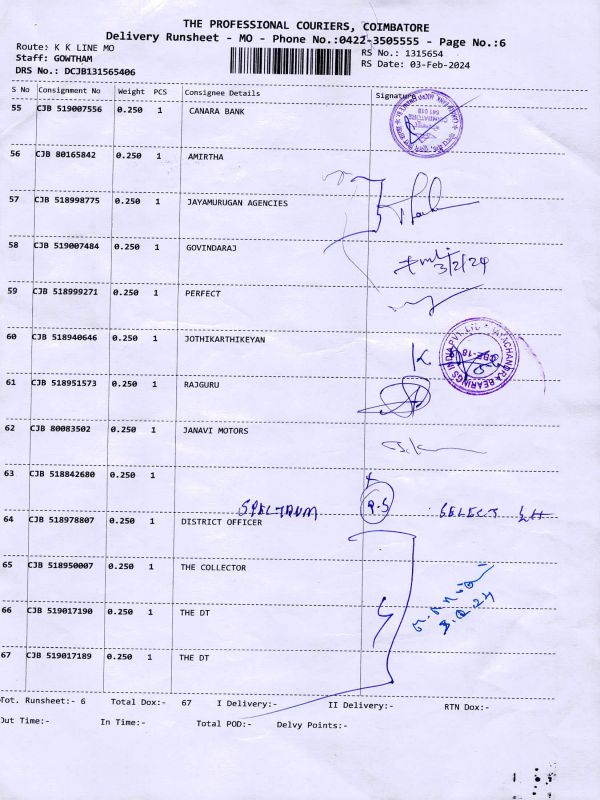 THE PROFESSIONAL COURIERS, COIMBATORE
Delivery Runsheet - MO - Phone No.:0422-3505555 - Page No.:6
Route: K K LINE MO
RS No.: 1315654
Staff: GOWTHAM
RS Date: 03-Feb-2024
DRS No.: DCJB131565406
S No Consignment No Weight PCS Consignee Details Signature
55 CJB 519007556 0.250 1 CANARA BANK
COIMBATORE
641 018
56 CJB 80165842 0.250 1 AMIRTHA
57 CJB 518998775 0.250 1 JAYAMURUGAN AGENCIES
58 CJB 519007484 0.250 1 GOVINDARAJ
3/2/24
59 CJB 518999271 0.250 1 PERFECT
60 CJB 518940646 0.250 1 JOTHIKARTHIKEYAN
BEARINGS INDIA PVT. LTD
CBE-18
61 CJB 518951573 0.250 1 RAJGURU
62 CJB 80083502 0.250 1 JANAVI MOTORS
63 CJB 518842680 0.250 1
SPECTRUM SELECT
64 CJB 518978807 0.250 1 DISTRICT OFFICER
65 CJB 518950007 0.250 1 THE COLLECTOR
66 CJB 519017190 0.250 1 THE DT
67 CJB 519017189 0.250 1 THE DT
Tot. Runsheet:- 6 Total Dox:- 67 I Delivery:- II Delivery:- RTN Dox:-
Out Time:- In Time:- Total POD:- Delvy Points:-